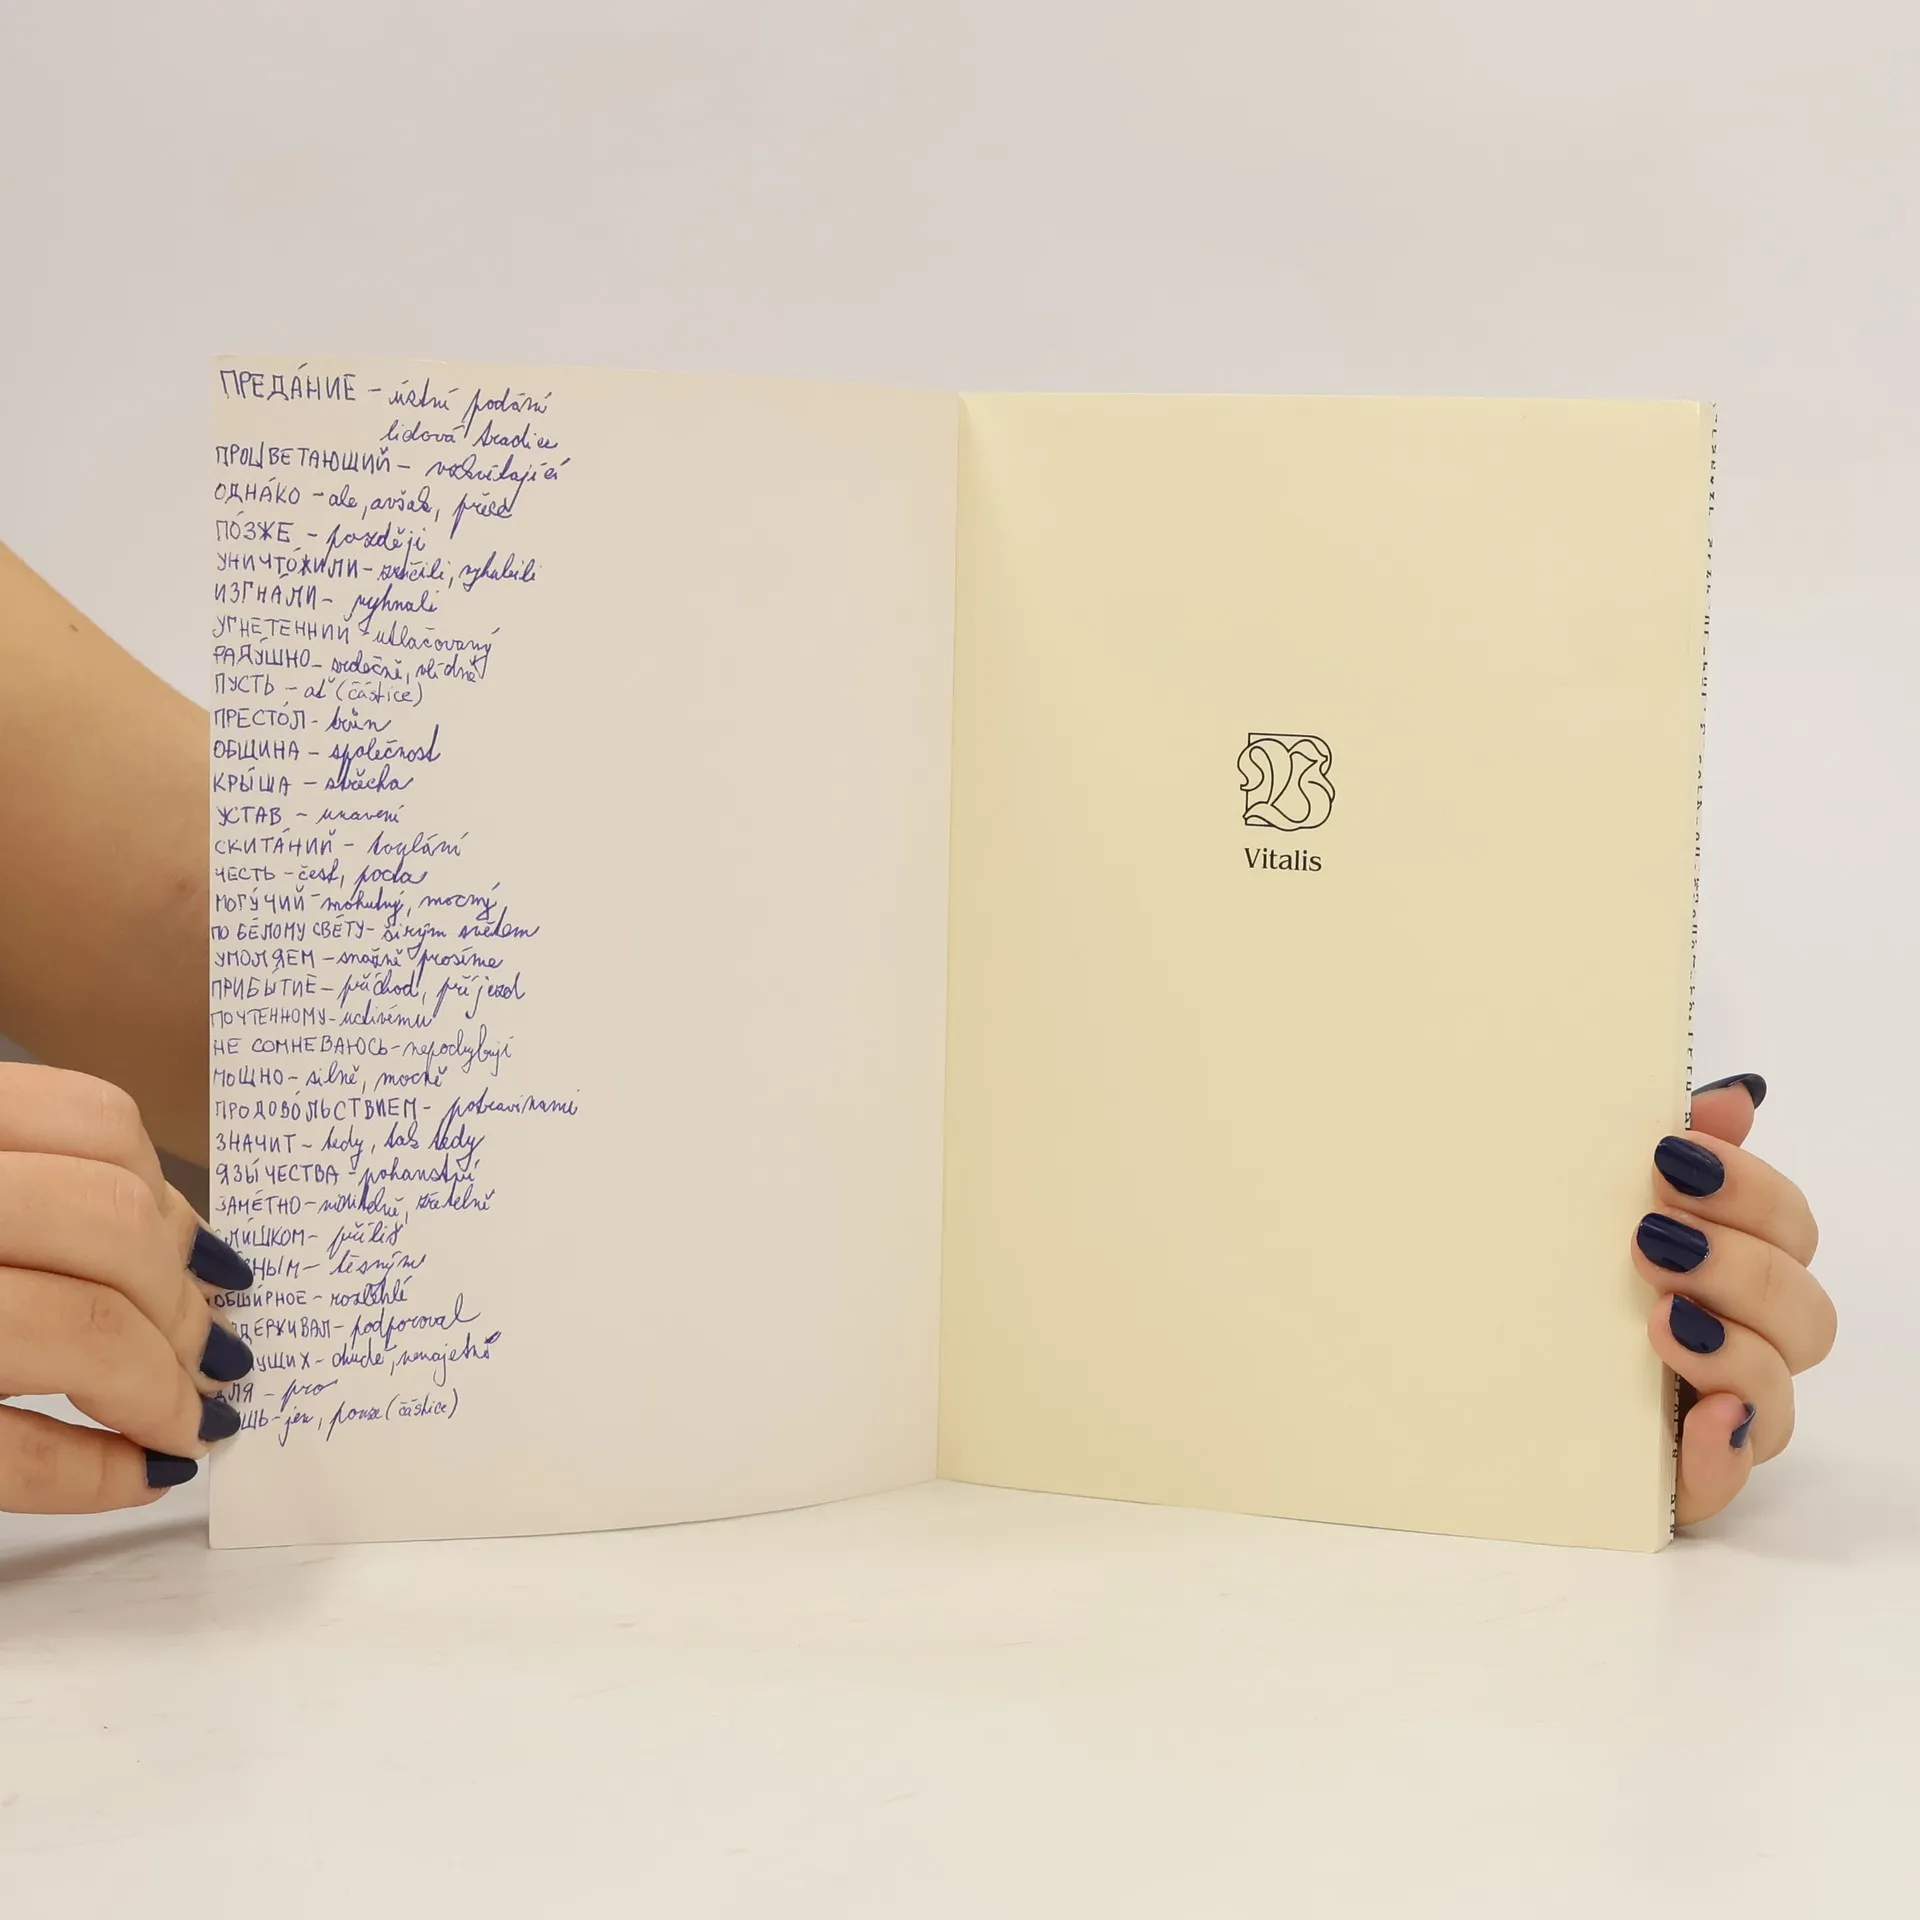 ПРЕДА́НИЕ – ústní podání
lidová tradice
ПРОЦВЕТАЮЩИЙ – vzkvétající
ОДНА́КО – ale, avšak, přece
ПО́ЗЖЕ – později
УНИЧТО́ЖИЛИ – zničili, vyhubili
ИЗГНА́ЛИ – vyhnali
УГНЕТЕННИЙ – utlačovaný
РАДУ́ШНО – srdečně, vlídně
ПУСТЬ – ať (částice)
ПРЕСТО́Л – trůn
ОБЩИНА – společnost
КРЫ́ША – střecha
УСТАВ – unavení
СКИТА́НИЙ – toulání
ЧЕСТЬ – čest, pocta
МОГУ́ЧИЙ – mohutný, mocný
ПО БЕ́ЛОМУ СВЕ́ТУ – širým světem
УМОЛЯЕМ – snažně prosíme
ПРИБЫ́ТИЕ – příchod, příjezd
ПОЧТЕННОМУ – uctivému
НЕ СОМНЕВАЮСЬ – nepochybuji
МОЩНО – silně, mocně
ПРОДОВО́ЛЬСТВИЕМ – potravinami
ЗНАЧИТ – tedy, tak tedy
ЯЗЫ́ЧЕСТВА – pohanství
ЗАМЕ́ТНО – viditelně, zřetelně
ЛИ́ШКОМ – příliš
НЫМ – těsným
ОБШИ́РНОЕ – rozlehlé
ДЕРЖИВАЛ – podporoval
УЩИХ – chudé, nemajetné
ДЛЯ – pro
ШЬ – jen, pouze (částice)
Vitalis